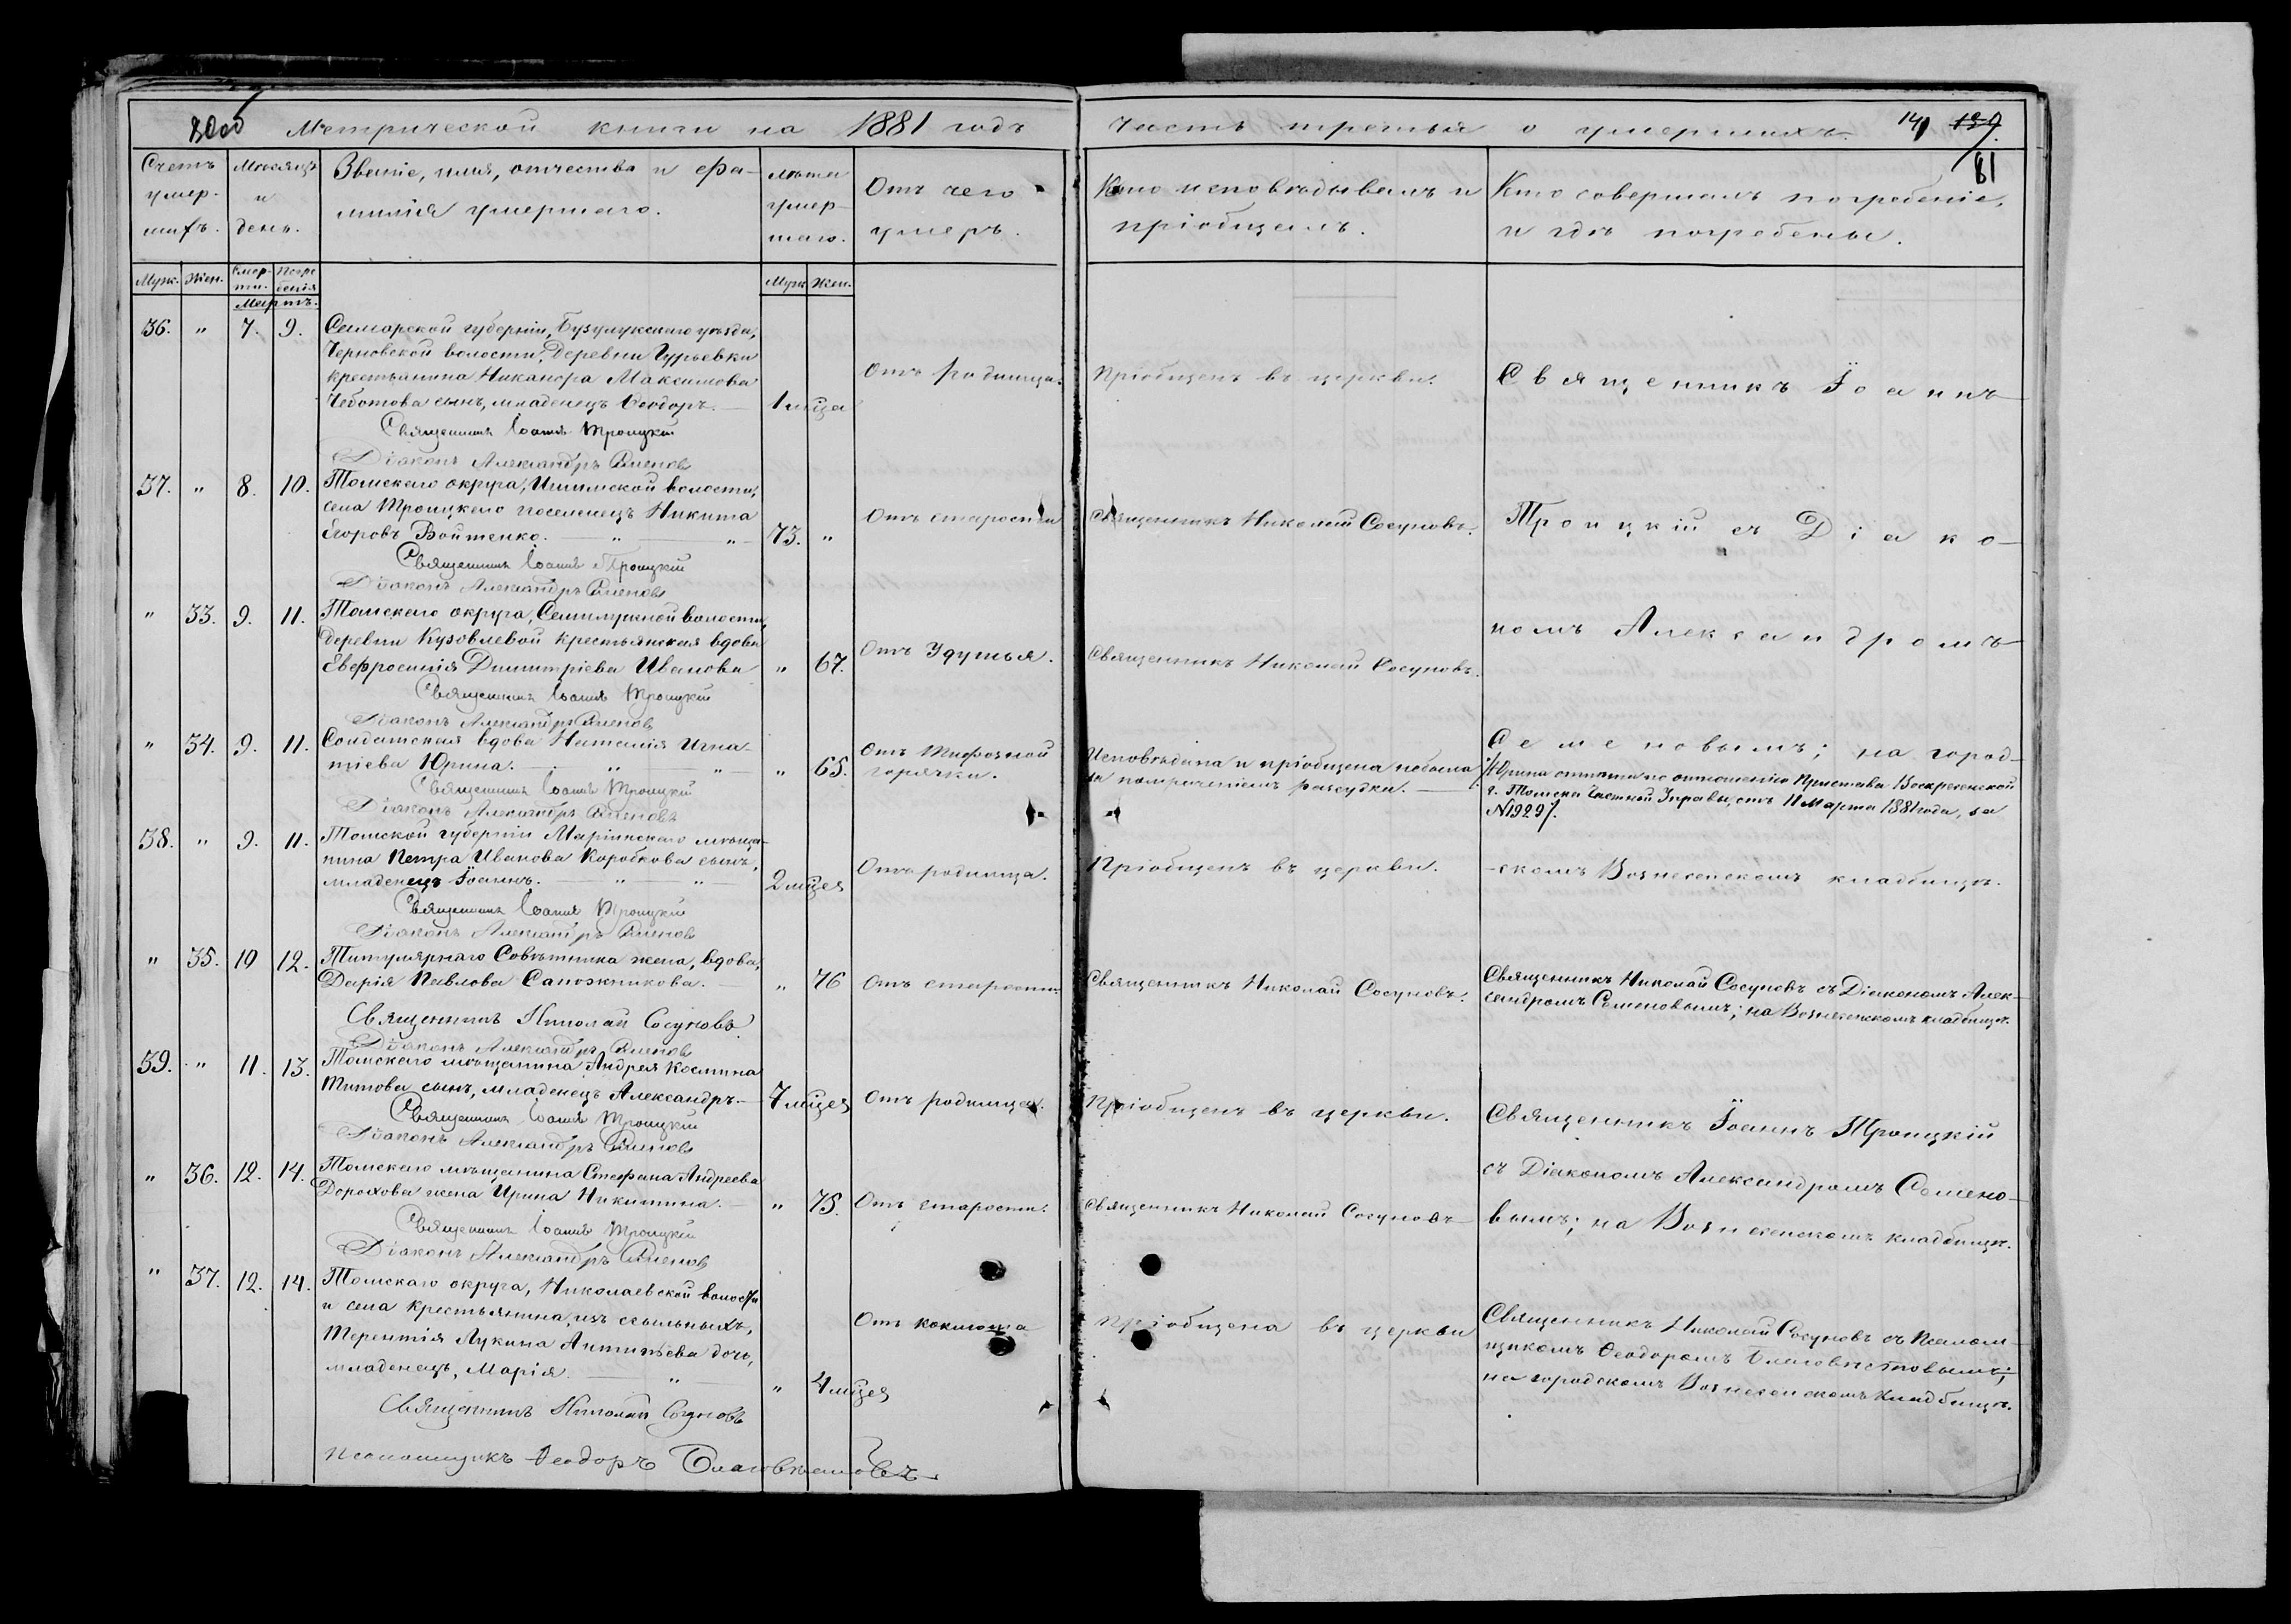 Метрической книги на 1881 годъ
Часть третья о умершихъ.
81
Счетъ умер-шихъ.
Мѣсяцъ и день.
Званіе, имя, отчество и фа-
милія умершаго.
Лѣта умер-шаго.
Отъ чего умеръ.
Кто исповѣдывалъ и
пріобщалъ.
Кто совершалъ погребеніе,
и гдѣ погребены.
Муж. Жен. Смер-ти. Погре-бенія Муж. Жен.
Мартъ.
36. " 7. 9. Самарской губерніи, Бузулукскаго уѣзда,
Черновской волости, деревни Гурьевки
крестьянина Никанора Максимова
Чеботова сынъ, младенецъ Ѳеодоръ. — 1 мѣсца
Отъ родимца. Пріобщенъ въ церкви. Священникъ Іоаннъ
Священникъ Іоаннъ Троицкій
Діаконъ Александръ Семеновъ
37. " 8. 10. Томскаго округа, Ишимской волости,
села Троицкаго поселенецъ Никита
Егоровъ Войтенко. — " — " — 73. "
Отъ старости Священникъ Николай Сосуновъ. Троицкій съ Діако-
Священникъ Іоаннъ Троицкій
Діаконъ Александръ Семеновъ
" 33. 9. 11. Томскаго округа, Семилужной волости,
деревни Кузовлевой крестьянская вдова
Евфросинія Димитріева Иванова " 67.
Отъ Удушья. Священникъ Николай Сосуновъ. номъ Александромъ
Священникъ Іоаннъ Троицкій
Діаконъ Александръ Семеновъ
" 34. 9. 11. Солдатская вдова Наталія Игна-
тіева Юрина. — " — " — " 65.
Отъ Тифозной
горячки.
Исповѣдана и пріобщена небыла
за помраченіемъ разсудка. —
Семеновымъ; на город-
Юрина отпѣта по отношенію Пристава Воскресенской
г. Томска Частной Управы, отъ 11 Марта 1881 года, за
№ 1929/.
Священникъ Іоаннъ Троицкій
Діаконъ Александръ Семеновъ
38. " 9. 11. Томской губерніи Маріинскаго мѣща-
нина Петра Иванова Коробкова сынъ,
младенецъ Іоаннъ. — " — " — 2 мѣсцев
Отъ родимца. Пріобщенъ въ церкви. -скомъ Вознесенскомъ кладбищѣ.
Священникъ Іоаннъ Троицкій
Діаконъ Александръ Семеновъ
" 35. 10 12. Титулярнаго Совѣтника жена, вдова,
Дарія Павлова Сапожникова. — " 76
Отъ старости. Священникъ Николай Сосуновъ.
Священникъ Николай Сосуновъ съ Діакономъ Алек-
сандромъ Семеновымъ; на Вознесенскомъ кладбищѣ.
Священникъ Николай Сосуновъ
Діаконъ Александръ Семеновъ
39. " 11. 13. Томскаго мѣщанина Андрея Космина
Титова сынъ, младенецъ Александръ. — 7 мѣсцев
Отъ родимца. Пріобщенъ въ церкви. Священникъ Іоаннъ Троицкій
Священникъ Іоаннъ Троицкій
Діаконъ Александръ Семеновъ
" 36. 12. 14. Томскаго мѣщанина Стефана Андреева
Дорохова жена Ирина Никитина. — " 75.
Отъ старости. Священникъ Николай Сосуновъ
съ Діакономъ Александромъ Семено-
вымъ; на Вознесенскомъ кладбищѣ.
Священникъ Іоаннъ Троицкій
Діаконъ Александръ Семеновъ
" 37. 12. 14. Томскаго округа, Николаевской волости
и села крестьянина, изъ ссыльныхъ,
Терентія Лукина Антипьева дочь,
младенецъ, Марія. — " — " 4 мѣсцев
Отъ коклюша Пріобщена въ церкви
Священникъ Николай Сосуновъ съ Псалом-
щикомъ Ѳеодоромъ Благовѣстовымъ;
на городскомъ Вознесенскомъ кладбищѣ.
Священникъ Николай Сосуновъ
Псаломщикъ Ѳеодоръ Благовѣстовъ